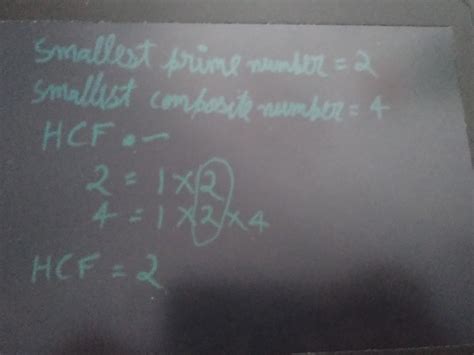 smallest prime number = 2
smallest composite number = 4
HCF . -
2 = 1 × 2
4 = 1 × 2 × 4
HCF = 2